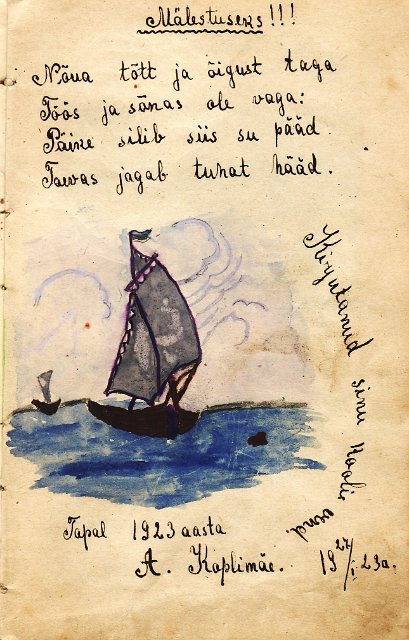 Mälestuseks!!!
Nõua tõtt ja õigust taga
Töös ja sõnas ole vaga:
Päike silib siis su pääd
Taewas jagab tuhat hääd.
Kirjutanud sinu kooli õsud.
Tapal 1923 aasta
A. Koplimäe. 19 27/I 23a.